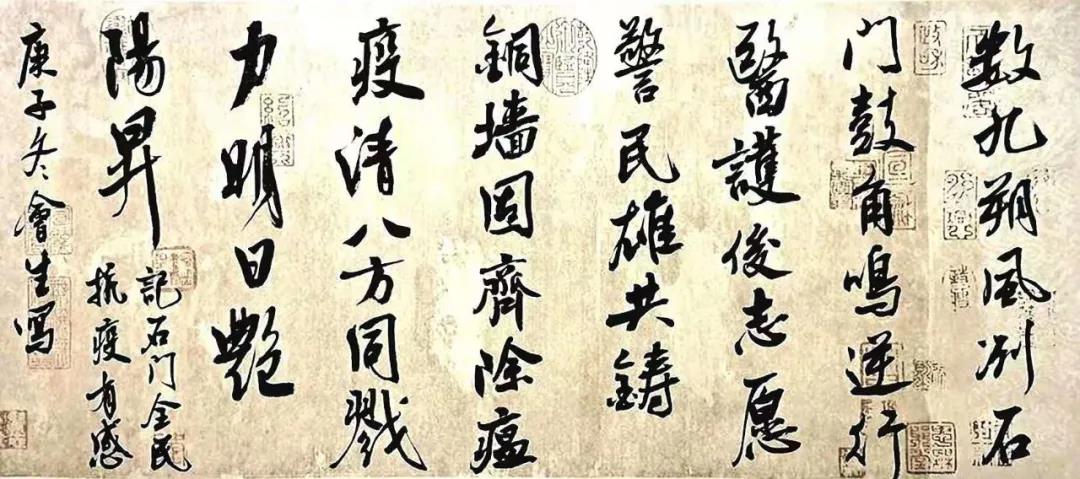 数九朔風冽石
门鼓角鳴逆行
醫護俊志愿
警民雄共鑄
銅墙固齊除瘟
疫清八方同戮
力明日艷
陽昇
記石门全民
抗疫有感
庚子冬會生寫